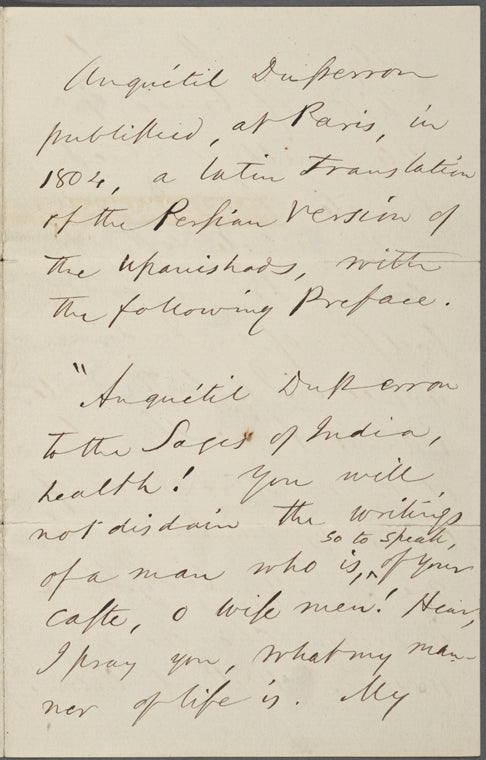 Anquétil Duperron
published, at Paris, in
1804, a latin Translation
of the Persian Version of
the Upanishads, with
the following Preface.
"Anquétil Duperron
to the Sages of India,
health! You will
not disdain the writings
of a man who is, so to speak, of your
caste, O wise men! Hear,
I pray you, what my man-
ner of life is. My